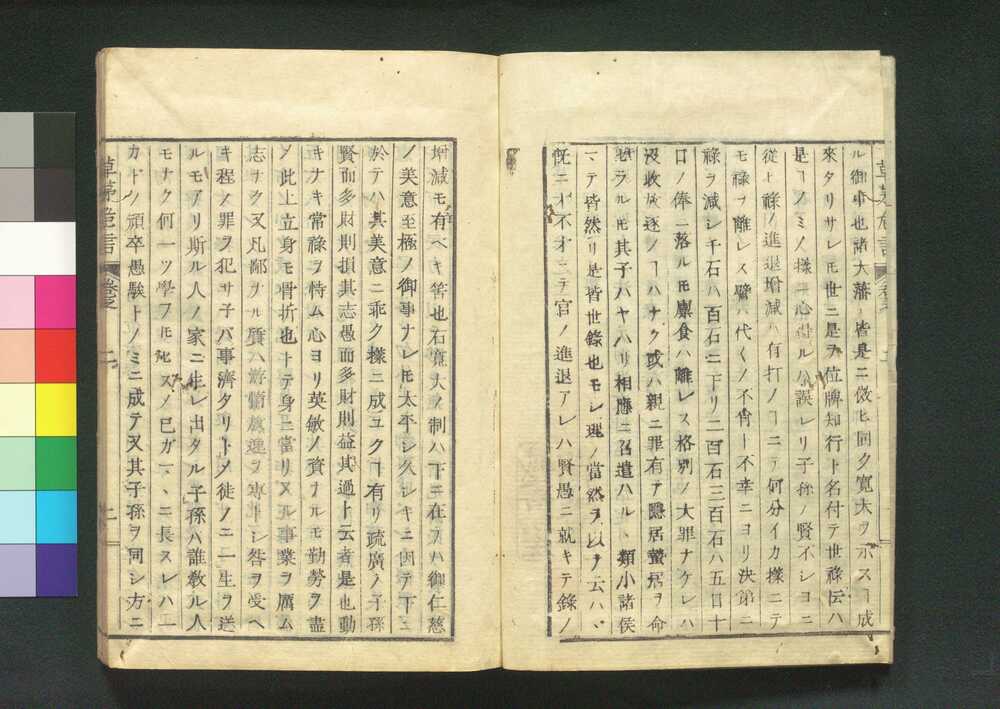 ル御事也諸大藩ハ皆是ニ倣ヒ同ク寛大ヲ示スヿ成
來タリサレモ世ニ是ヲ位牌知行ト名付テ世祿伝ハ
是ヿノミノ様ニ心得ルハ誤レリ子孫ノ賢不シヨニ
從ヒ祿ノ進退増減ハ有打ノヿニテ何分イカ様ニテ
モ祿ヲ離レス譬ハ代くノ不肖ヿ不幸ニヨリ決第ニ
祿ヲ減シ千石ハ百石ニ下リ二百石三百石ハ五口十
口ノ俸ニ落ルモ廩食ハ離レス格別ノ大罪ナケレハ
沒收放逐ノヿハナク或ハ親ニ罪有テ隱居蟄居ヲ命
セラルモ其子ハヤハリ相應ニ召遣ハル類小諸侯
マテ皆然リ是皆世錄也モシ理ノ當然ヲ以テ云ハヽ
既ニ才不才ニテ官ノ進退アレハ賢愚ニ就キテ錄ノ
増減モ有ベキ筈也石寛大ノ制ハ下ニ在テハ御仁慈
ノ美意至極ノ御事ナレモ太平シ久シキニ因テ下ニ
於テハ其美意ニ乖ク様ニ成ユクヿ有リ疏廣ノ子孫
賢而多財則損其志愚而多財則益其過ト云者是也動
キナキ常祿ヲ恃ム心ヨリ英敏ノ資ナルモ勤勞ヲ盡
ノ此上立身モ骨折也トテ身ニ當リスル事業ヲ厲ム
志ナク又凡鄙ナル質ハ游惰放逸ヲ專トシ咎ヲ受ヘ
キ程ノ罪ヲ犯サ子バ事濟タリトメ徒ノニ一生ヲ送
ルモアリ斯ル人ノ家ニ生レ出タル子孫ハ誰敎ル人
モナク何一ツ學フモ不スノ己ガマヽニ長スレハ一
カドノ頑卒愚騃トノミニ成テ又其子孫ヲ同シ方ニ
草茅危言
卷之
二